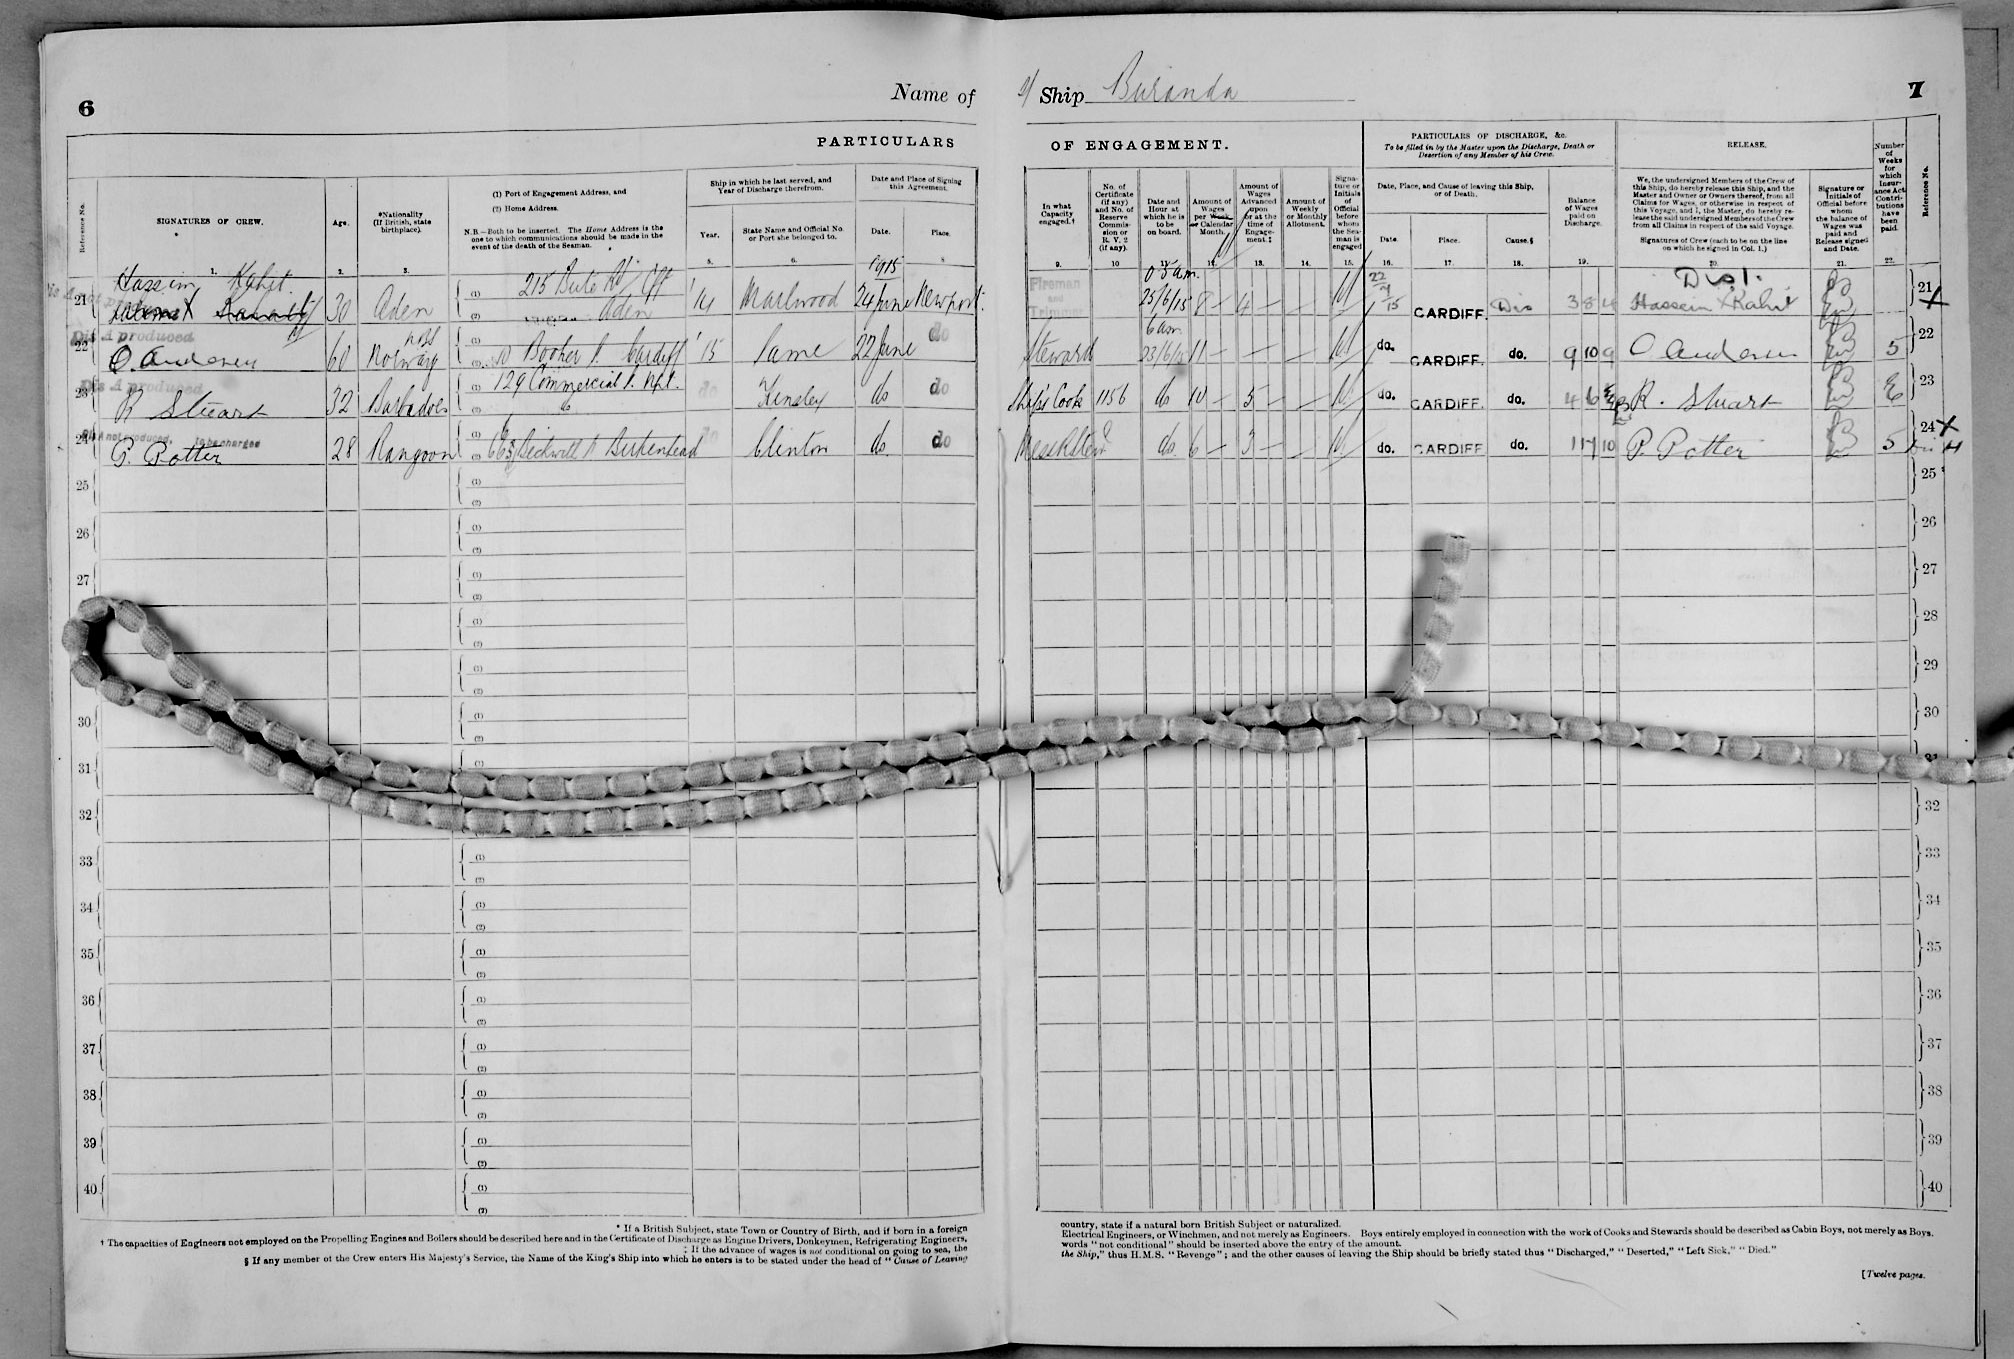 6
Name of
Ship Buranda
7
PARTICULARS
OF ENGAGEMENT.
PARTICULARS OF DISCHARGE, &c.
To be filled in by the Master upon the Discharge, Death or
Desertion of any Member of his Crew.
RELEASE.
Number
of
Weeks
for
which
Insur-
ance Act
Contri-
butions
have
been
paid.
Reference No.
SIGNATURES OF CREW.
Age.
*Nationality
(If British, state
birthplace).
(1) Port of Engagement Address, and
(2) Home Address.
N.B.—Both to be inserted. The Home Address is the
one to which communications should be made in the
event of the death of the Seaman.
Ship in which he last served, and
Year of Discharge therefrom.
Year.
State Name and Official No.
or Port she belonged to.
Date and Place of Signing
this Agreement.
Date.
Place.
In what
Capacity
engaged.†
No. of
Certificate
(if any)
and No. of
Reserve
Commis-
sion or
R. V. 2
(if any).
Date and
Hour at
which he is
to be
on board.
Amount of
Wages
per Week
or Calendar
Month.
Amount of
Wages
Advanced
upon
or at the
time of
Engage-
ment.‡
Amount of
Weekly
or Monthly
Allotment.
Signa-
ture or
Initials
of
Official
before
whom
the Sea-
man is
engaged
Date, Place, and Cause of leaving this Ship,
or of Death.
Date.
Place.
Cause.§
Balance
of Wages
paid on
Discharge.
We, the undersigned Members of the Crew of
this Ship, do hereby release this Ship, and the
Master and Owner or Owners thereof, from all
Claims for Wages, or otherwise in respect of
this Voyage, and I, the Master, do hereby re-
lease the said undersigned Members of the Crew
from all Claims in respect of the said Voyage.
Signatures of Crew (each to be on the line
on which he signed in Col. 1.)
Signature or
Initials of
Official before
whom
the balance of
Wages was
paid and
Release signed
and Date.
Reference No.
1. 2. 3. 5. 6. 8 9. 10 11 12. 13. 14. 15. 16. 17. 18. 19. 20. 21. 22.
21 Hassim Kahit. 30 Aden 215 Bute Rd Cff Aden '14 Marlwood 1915 24 June Newport.
Fireman and Trimmer 25/6/15 8 - 4 - - 22/7/15 CARDIFF. Dis 3 8 4 Dis 1. Hassein X Kahit 21 X
Dis A produced
22 O. Andersen 60 Norway 10 Booker S. Cardiff '15 Same 22 June do
Steward 6 am 23/6/15 11 - - do. CARDIFF. do. 9 10 9 O Andersen 5 22
Dis A produced
23 R Stuart 32 Barbados 129 Commercial S. Npt. do do Kinsley do do
Ship's Cook 1156 do 10 - 5 - - do. CARDIFF. do. 4 6 R. Stuart 23
Dis A not produced,
24 P. Potter 28 Rangoon 63 Beckwith S Birkenhead do Clinton do do
do. 6 - 3 - - do. CARDIFF do. 1 17 10 P. Potter 5 24 X
25 25
26 26
27 27
28
29
30 30
31 31
32 32
33 33
34 34
35 35
36 36
37 37
38 38
39 39
40 40
* If a British Subject, state Town or Country of Birth, and if born in a foreign
country, state if a natural born British Subject or naturalized.
† The capacities of Engineers not employed on the Propelling Engines and Boilers should be described here and in the Certificate of Discharge as Engine Drivers, Donkeymen, Refrigerating Engineers,
Electrical Engineers, or Winchmen, and not merely as Engineers. Boys entirely employed in connection with the work of Cooks and Stewards should be described as Cabin Boys, not merely as Boys.
‡ If the advance of wages is not conditional on going to sea, the
words "not conditional" should be inserted above the entry of the amount.
§ If any member of the Crew enters His Majesty's Service, the Name of the King's Ship into which he enters is to be stated under the head of "Cause of Leaving
the Ship," thus H.M.S. "Revenge"; and the other causes of leaving the Ship should be briefly stated thus "Discharged," "Deserted," "Left Sick," "Died."
[Twelve pages.